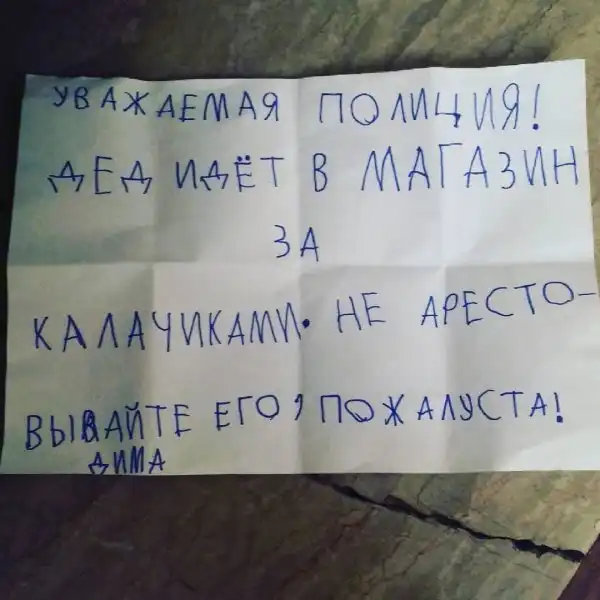 УВАЖАЕМАЯ ПОЛИЦИЯ!
ДЕД ИДЁТ В МАГАЗИН
ЗА
КАЛАЧИКАМИ. НЕ АРЕСТО-
ВЫВАЙТЕ ЕГО, ПОЖАЛУСТА!
ДИМА